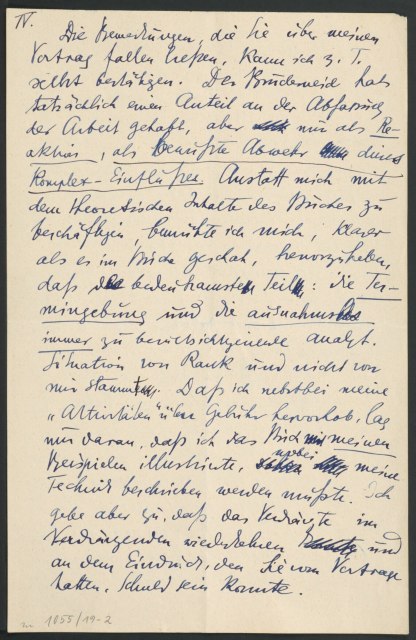 IV.
Die Bemerkungen, die Sie über meinen
Vortrag fallen ließen, kann ich z. T.
selbst bestätigen. Der Bruderneid hat
tatsächlich einen Anteil an der Abfassung
der Arbeit gehabt, aber nur als Re-
aktion, als bewußte Abwehr dieses
Komplex-Einflußes. Anstatt mich mit
dem theoretischen Inhalte des Buches zu
beschäftigen, bemühte ich mich, klarer
als es im Buche geschah, hervorzuheben,
daß die bedeutsamsten Teile: die Ter-
mingebung und die ausnahmslos
immer zu berücksichtigende analyt.
Situation von Rank und nicht von
mir stammten. Daß ich nebstbei meine
„Aktivitäten" über Gebühr hervorhob, lag
nur daran, daß ich das Buch mit meinen
Beispielen illustrierte, wobei meine
Technik beschrieben werden mußte. Ich
gebe aber zu, daß das Verdrängte im
Verdrängenden wiederkehren und
an dem Eindruck, den Sie vom Vortrage
hatten, Schuld sein konnte.
1055/19-2